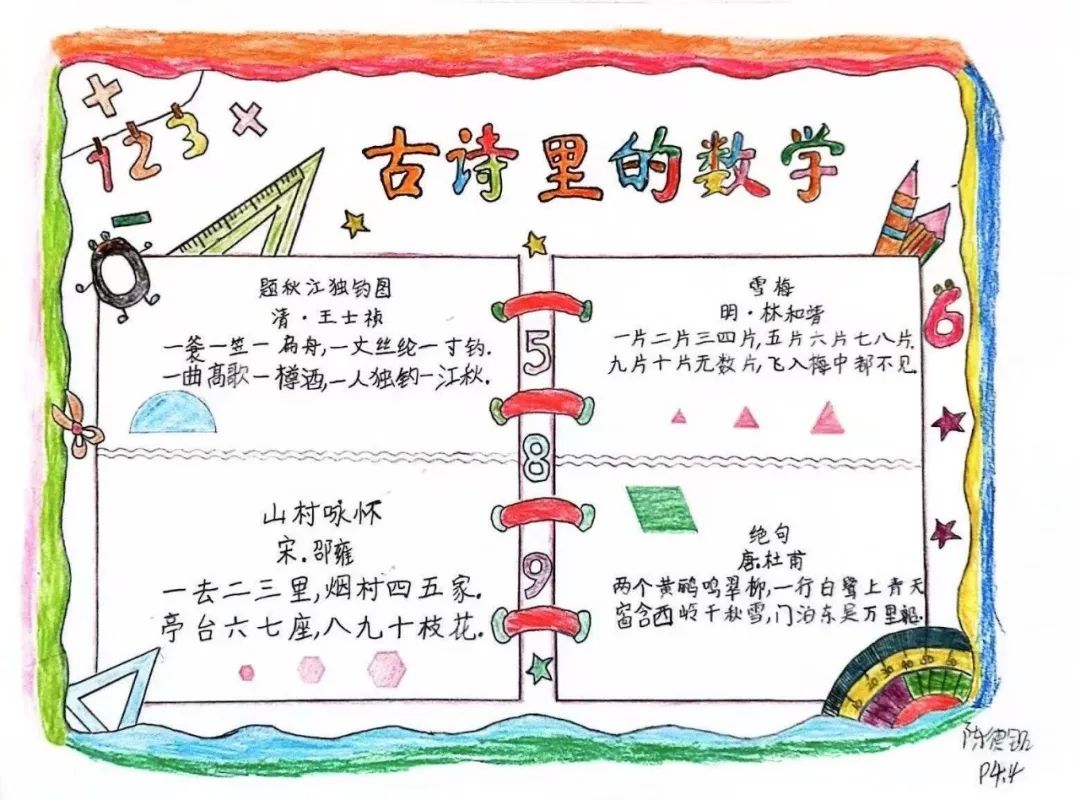 123
古诗里的数学
0
题秋江独钓图
清·王士祯
一蓑一笠一扁舟,一丈丝纶一寸钓.
一曲高歌一樽酒,一人独钓一江秋.
山村咏怀
宋.邵雍
一去二三里,烟村四五家.
亭台六七座,八九十枝花.
5
8
9
雪梅
明·林和靖
一片二片三四片,五片六片七八片.
九片十片无数片,飞入梅中都不见
6
绝句
唐.杜甫
两个黄鹂鸣翠柳,一行白鹭上青天
窗含西岭千秋雪,门泊东吴万里船.
陈德
P4.4